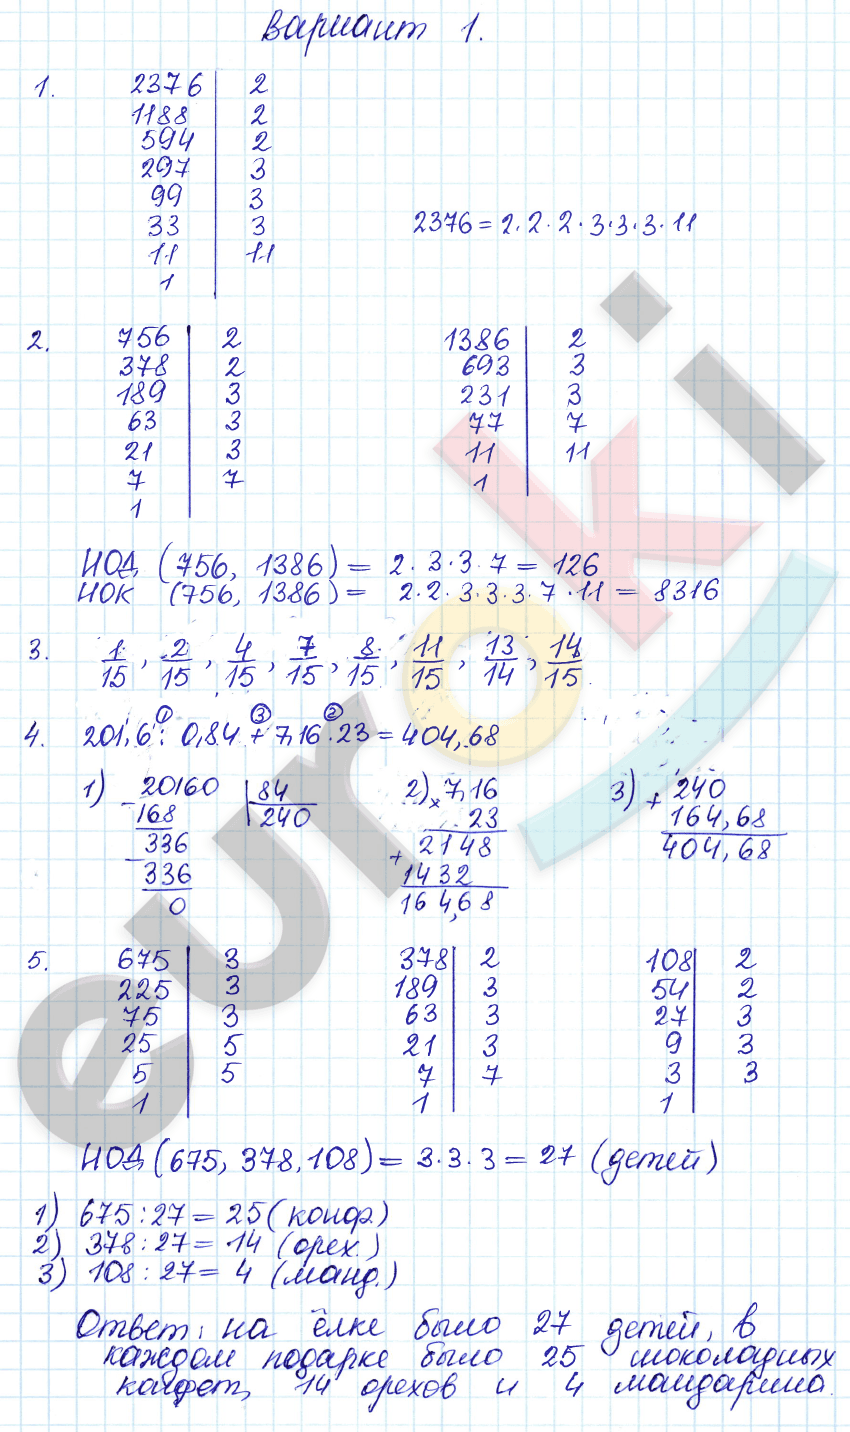 Вариант 1.
1.
2376 | 2
1188 | 2
594 | 2
297 | 3
99 | 3
33 | 3
11 | 11
1 |
2376 = 2·2·2·3·3·3·11
2.
756 | 2
378 | 2
189 | 3
63 | 3
21 | 3
7 | 7
1 |
1386 | 2
693 | 3
231 | 3
77 | 7
11 | 11
1 |
НОД (756, 1386) = 2·3·3·7 = 126
НОК (756, 1386) = 2·2·3·3·3·7·11 = 8316
3. 1/15, 2/15, 4/15, 7/15, 8/15, 11/15, 13/14, 14/15
① ③ ②
4. 201,6 : 0,84 + 7,16·23 = 404,68
1) 20160 | 84
- 168 | 240
336
- 336
0
2) × 7,16
23
2148
+ 1432
164,68
3) + 240
164,68
404,68
5.
675 | 3
225 | 3
75 | 3
25 | 5
5 | 5
1 |
378 | 2
189 | 3
63 | 3
21 | 3
7 | 7
1 |
108 | 2
54 | 2
27 | 3
9 | 3
3 | 3
1 |
НОД (675, 378, 108) = 3·3·3 = 27 (детей)
1) 675 : 27 = 25 (конф.)
2) 378 : 27 = 14 (орех.)
3) 108 : 27 = 4 (манд.)
Ответ: на ёлке было 27 детей, в
каждом подарке было 25 шоколадных
конфет, 14 орехов и 4 мандарина.
euroki